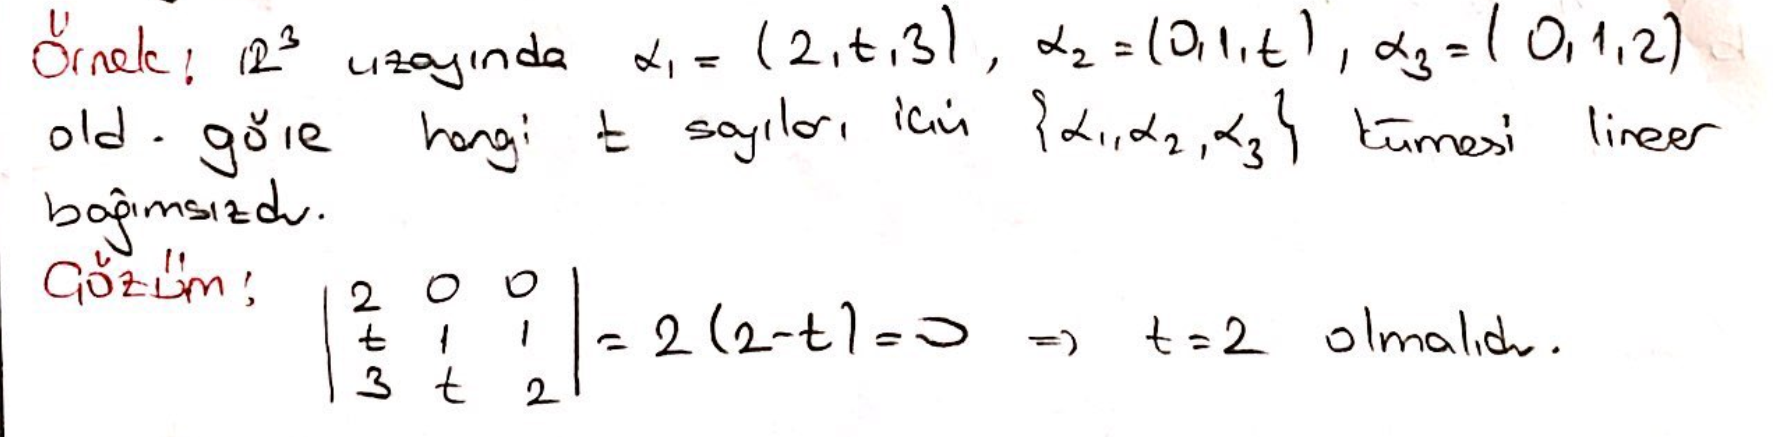 Örnek: ℝ³ uzayında α₁ = (2,t,3), α₂ = (0,1,t), α₃ = (0,1,2)
old. göre hangi t sayıları için {α₁,α₂,α₃} kümesi lineer
bağımsızdır.
Çözüm:
| 2 0 0 |
| t 1 1 | = 2(2-t) = 0 ⇒ t = 2 olmalıdır.
| 3 t 2 |